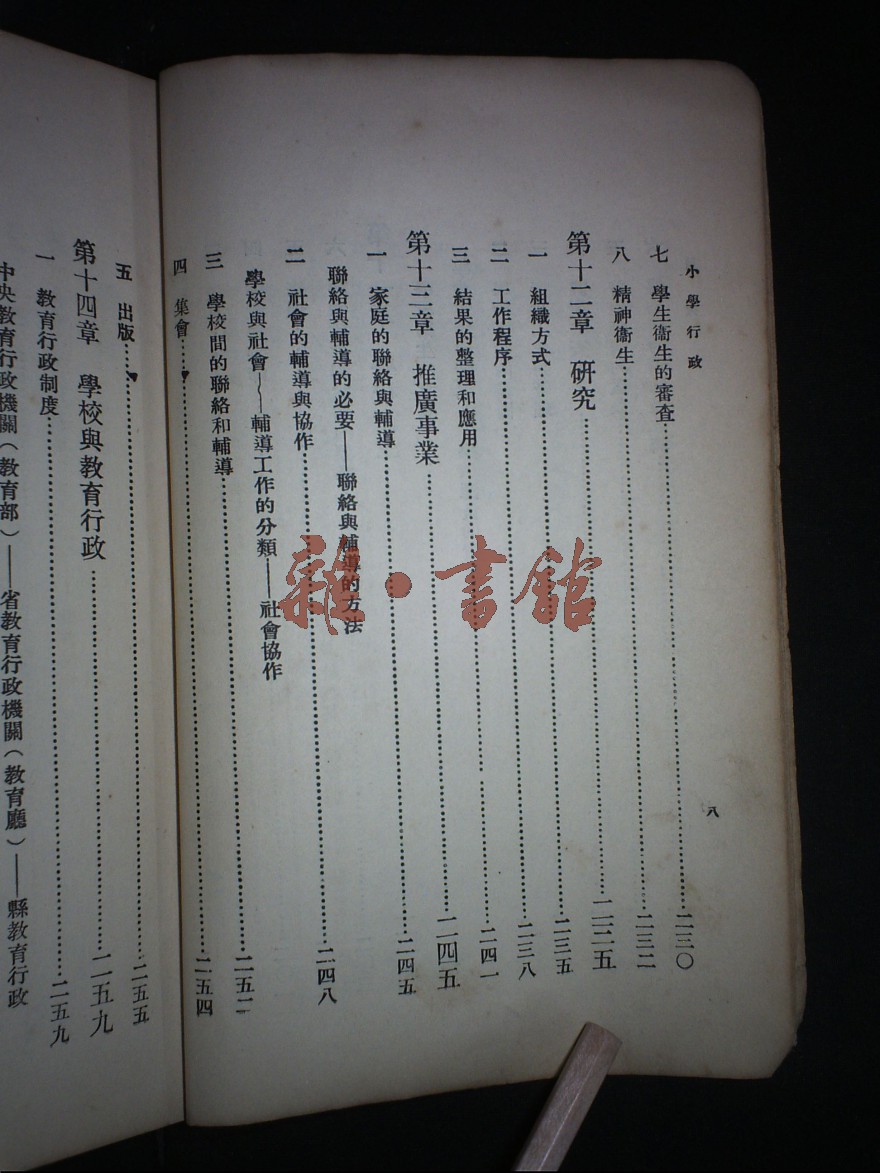 小學行政
八
七 學生衞生的審查……二三〇
八 精神衞生……二三二
第十二章 研究……二二五
一 組織方式……二三五
二 工作程序……二三八
三 結果的整理和應用……二四一
第十三章 推廣事業……二四五
一 家庭的聯絡與輔導……二四五
聯絡與輔導的必要——聯絡與輔導的方法
二 社會的輔導與協作……二四八
學校與社會——輔導工作的分類——社會協作
三 學校間的聯絡和輔導……二五二
四 集會……二五四
五 出版……二五五
第十四章 學校與教育行政……二五九
一 教育行政制度……二五九
中央教育行政機關（教育部）——省教育行政機關（教育廳）——縣教育行政
雜·書館